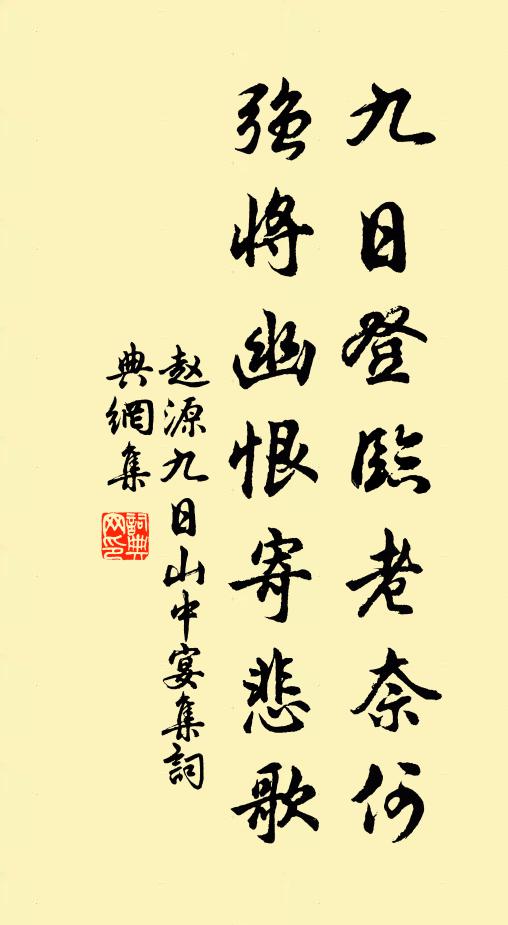 九日登臨老奈何
強將幽恨寄悲歌
赵源九日山中宴集詞
典網集
詞典
网印